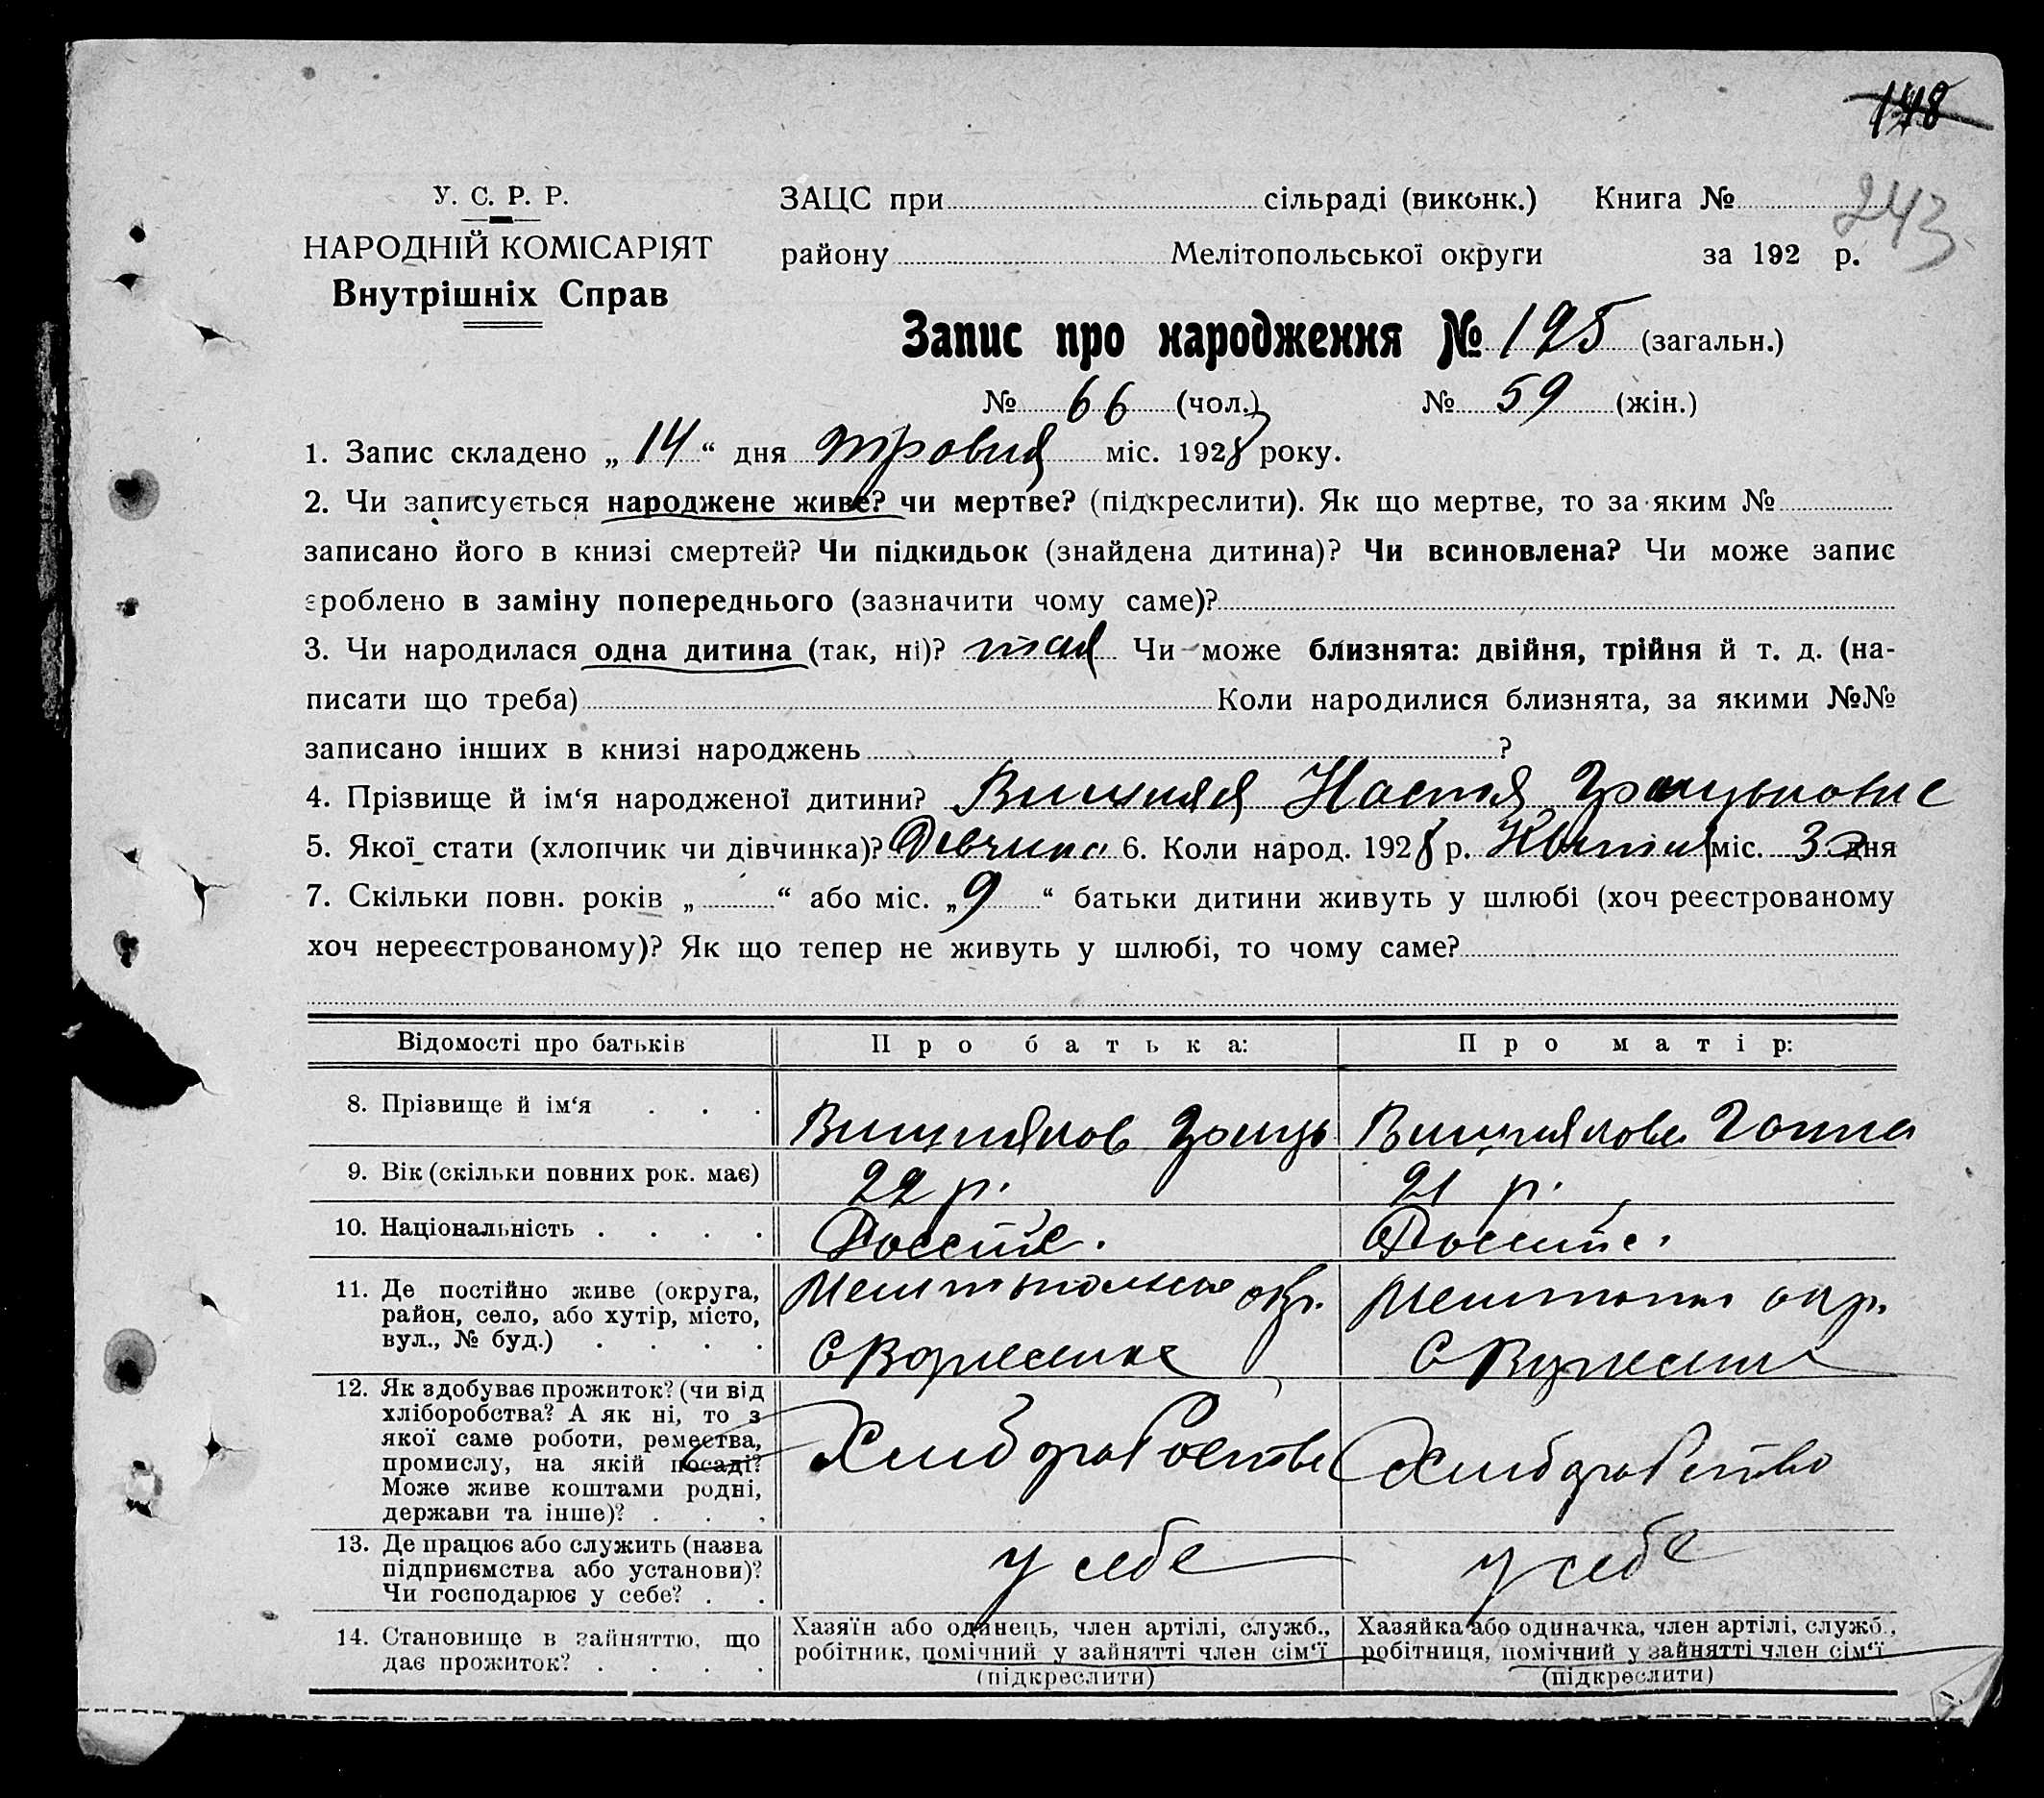 148
243
У. С. Р. Р.
НАРОДНІЙ КОМІСАРІЯТ
Внутрішніх Справ
ЗАЦС при сільраді (виконк.) Книга №
району Мелітопольської округи за 192 р.
Запис про народження № 125 (загальн.)
№ 66 (чол.) № 59 (жін.)
1. Запис складено „ 14 “ дня травня міс. 1928 року.
2. Чи записується народжене живе? чи мертве? (підкреслити). Як що мертве, то за яким №
записано його в книзі смертей? Чи підкидьок (знайдена дитина)? Чи всиновлена? Чи може запис
зроблено в заміну попереднього (зазначити чому саме)?
3. Чи народилася одна дитина (так, ні)? так Чи може близнята: двійня, трійня й т. д. (на-
писати що треба) Коли народилися близнята, за якими №№
записано інших в книзі народжень ?
4. Прізвище й ім‘я народженої дитини? Настя
5. Якої стати (хлопчик чи дівчинка)? Дівчина 6. Коли народ. 1928 р. Квітня міс. 30 дня
7. Скільки повн. років „ “ або міс. „ 9 “ батьки дитини живуть у шлюбі (хоч реєстрованому
хоч нереєстрованому)? Як що тепер не живуть у шлюбі, то чому саме?
Відомості про батьків Про батька: Про матір:
8. Прізвище й ім‘я Вишняков Гриць Вишнякова Ганна
9. Вік (скільки повних рок. має) 22 р. 21 р.
10. Національність
11. Де постійно живе (округа,
район, село, або хутір, місто,
вул., № буд.)
окр. окр.
С С
12. Як здобуває прожиток? (чи від
хліборобства? А як ні, то з
якої саме роботи, ремества,
промислу, на якій посаді?
Може живе коштами родні,
держави та інше)?
Хліборобство Хліборобство
13. Де працює або служить (назва
підприємства або установи)?
Чи господарює у себе?
у себе у себе
14. Становище в зайняттю, що
дає прожиток?
Хазяїн або одинець, член артілі, служб.,
робітник, помічний у зайнятті член сім‘ї
(підкреслити)
Хазяйка або одиначка, член артілі, служб.,
робітниця, помічний у зайнятті член сім‘ї
(підкреслити)